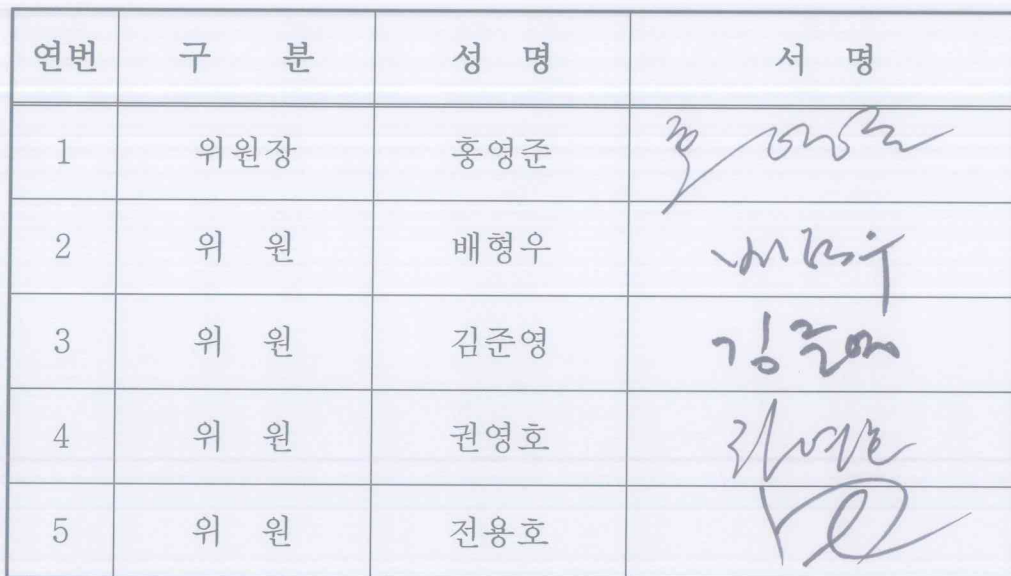 연번 구 분 성 명 서 명
1 위원장 홍영준
2 위 원 배형우 배형우
3 위 원 김준영 김준영
4 위 원 권영호 권영호
5 위 원 전용호